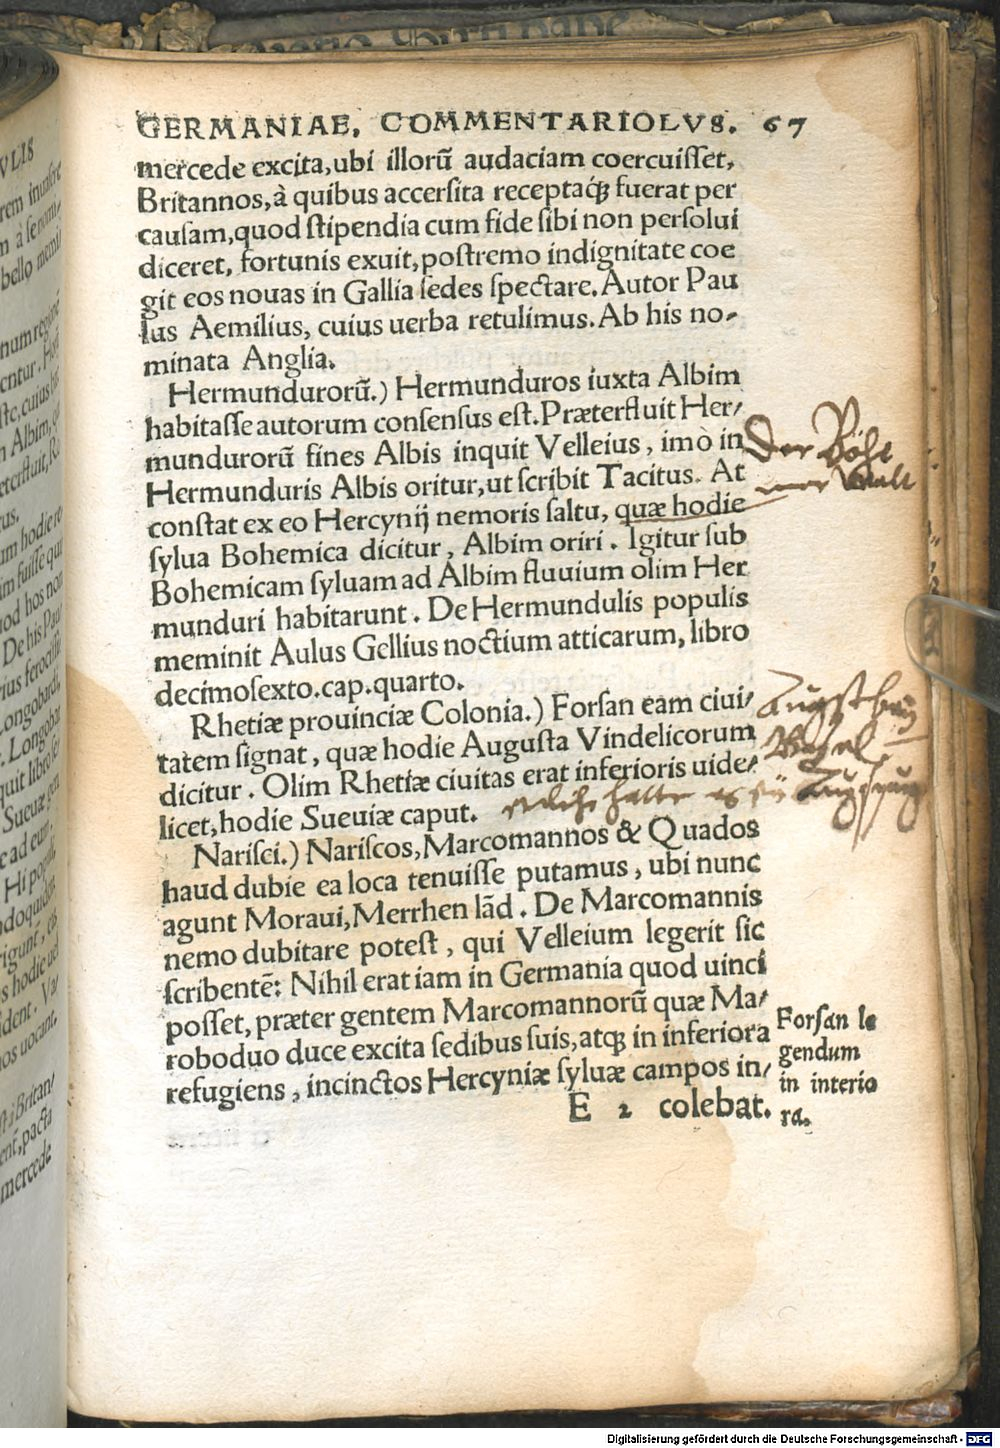 GERMANIAE. COMMENTARIOLVS. 67
mercede excita, ubi illorũ audaciam coercuiſſet,
Britannos, à quibus accerſita receptaq́ꝫ fuerat per
cauſam, quod ſtipendia cum fide ſibi non perſolui
diceret, fortunis exuit, poſtremo indignitate coe
git eos nouas in Gallia ſedes ſpectare. Autor Pau
lus Aemilius, cuius uerba retulimus. Ab his no⸗
minata Anglia.
Hermundurorũ.) Hermunduros iuxta Albim
habitaſſe autorum conſenſus eſt. Præterfluit Her⸗
mundurorũ fines Albis inquit Velleius, imò in
Hermunduris Albis oritur, ut ſcribit Tacitus. At
conſtat ex eo Hercynij nemoris ſaltu, quæ hodie
ſylua Bohemica dicitur, Albim oriri. Igitur ſub
Bohemicam ſyluam ad Albim fluuium olim Her
munduri habitarunt. De Hermundulis populis
meminit Aulus Gellius noctium atticarum, libro
decimoſexto. cap. quarto.
Rhetiæ prouinciæ Colonia.) Forſan eam ciui⸗
tatem ſignat, quæ hodie Auguſta Vindelicorum
dicitur. Olim Rhetiæ ciuitas erat inferioris uide⸗
licet, hodie Sueuiæ caput.
Nariſci.) Nariſcos, Marcomannos & Quados
haud dubie ea loca tenuiſſe putamus, ubi nunc
agunt Moraui, Merrhen lãd. De Marcomannis
nemo dubitare poteſt, qui Velleium legerit ſic
ſcribentẽ: Nihil erat iam in Germania quod uinci
poſſet, præter gentem Marcomannorũ quæ Ma⸗
roboduo duce excita ſedibus ſuis, atqꝫ in inferiora
refugiens, incinctos Hercyniæ ſyluæ campos in⸗
E 2 colebat.
Der Böhe
mer Walt
Forſan le
gendum
in interio
ra.
Digitalisierung gefördert durch die Deutsche Forschungsgemeinschaft - DFG